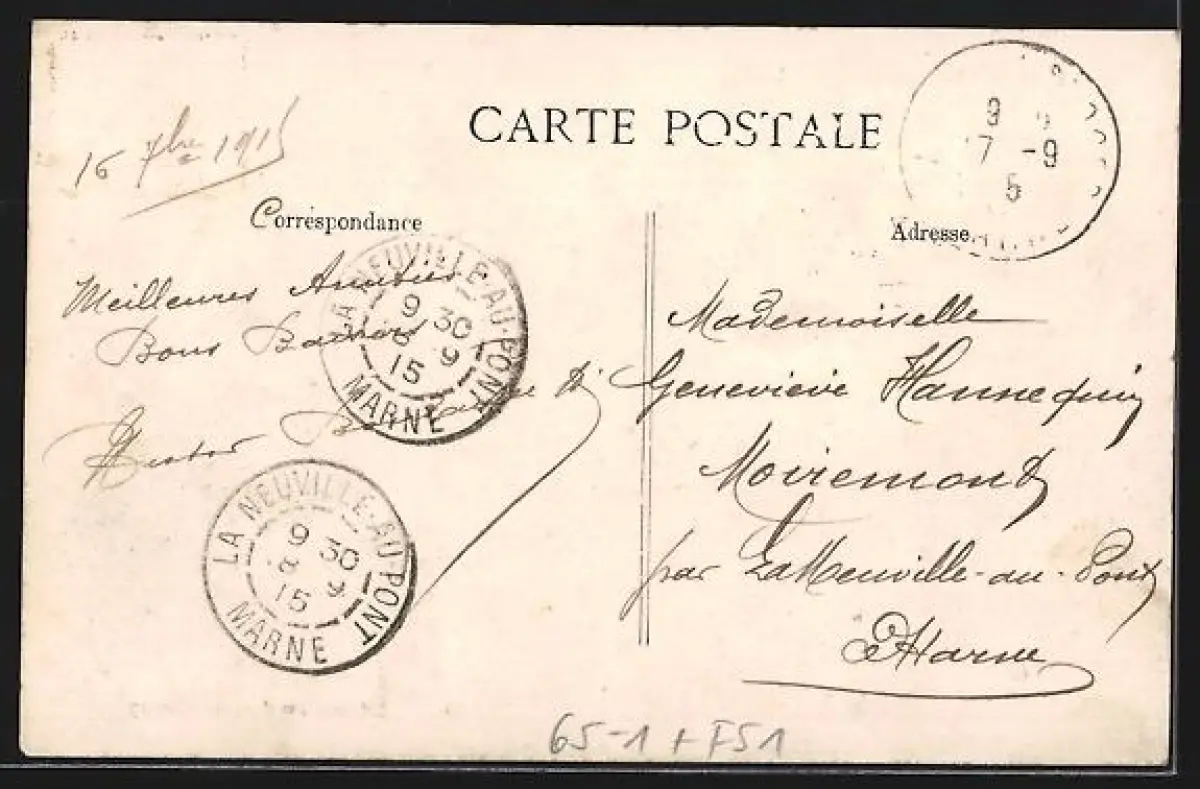 CARTE POSTALE
16 7bre 1915
Correspondance
Meilleures Amitiés
Bons Baisers
LA NEUVILLE-AU-PONT
9 30
9
15
MARNE
LA NEUVILLE-AU-PONT
9 30
8 9
15
MARNE
9
7 -9
5
Adresse
Mademoiselle
Geneviève Hannequin
Moiremont
par La Neuville-au-Pont
Marne
65-1 + F51